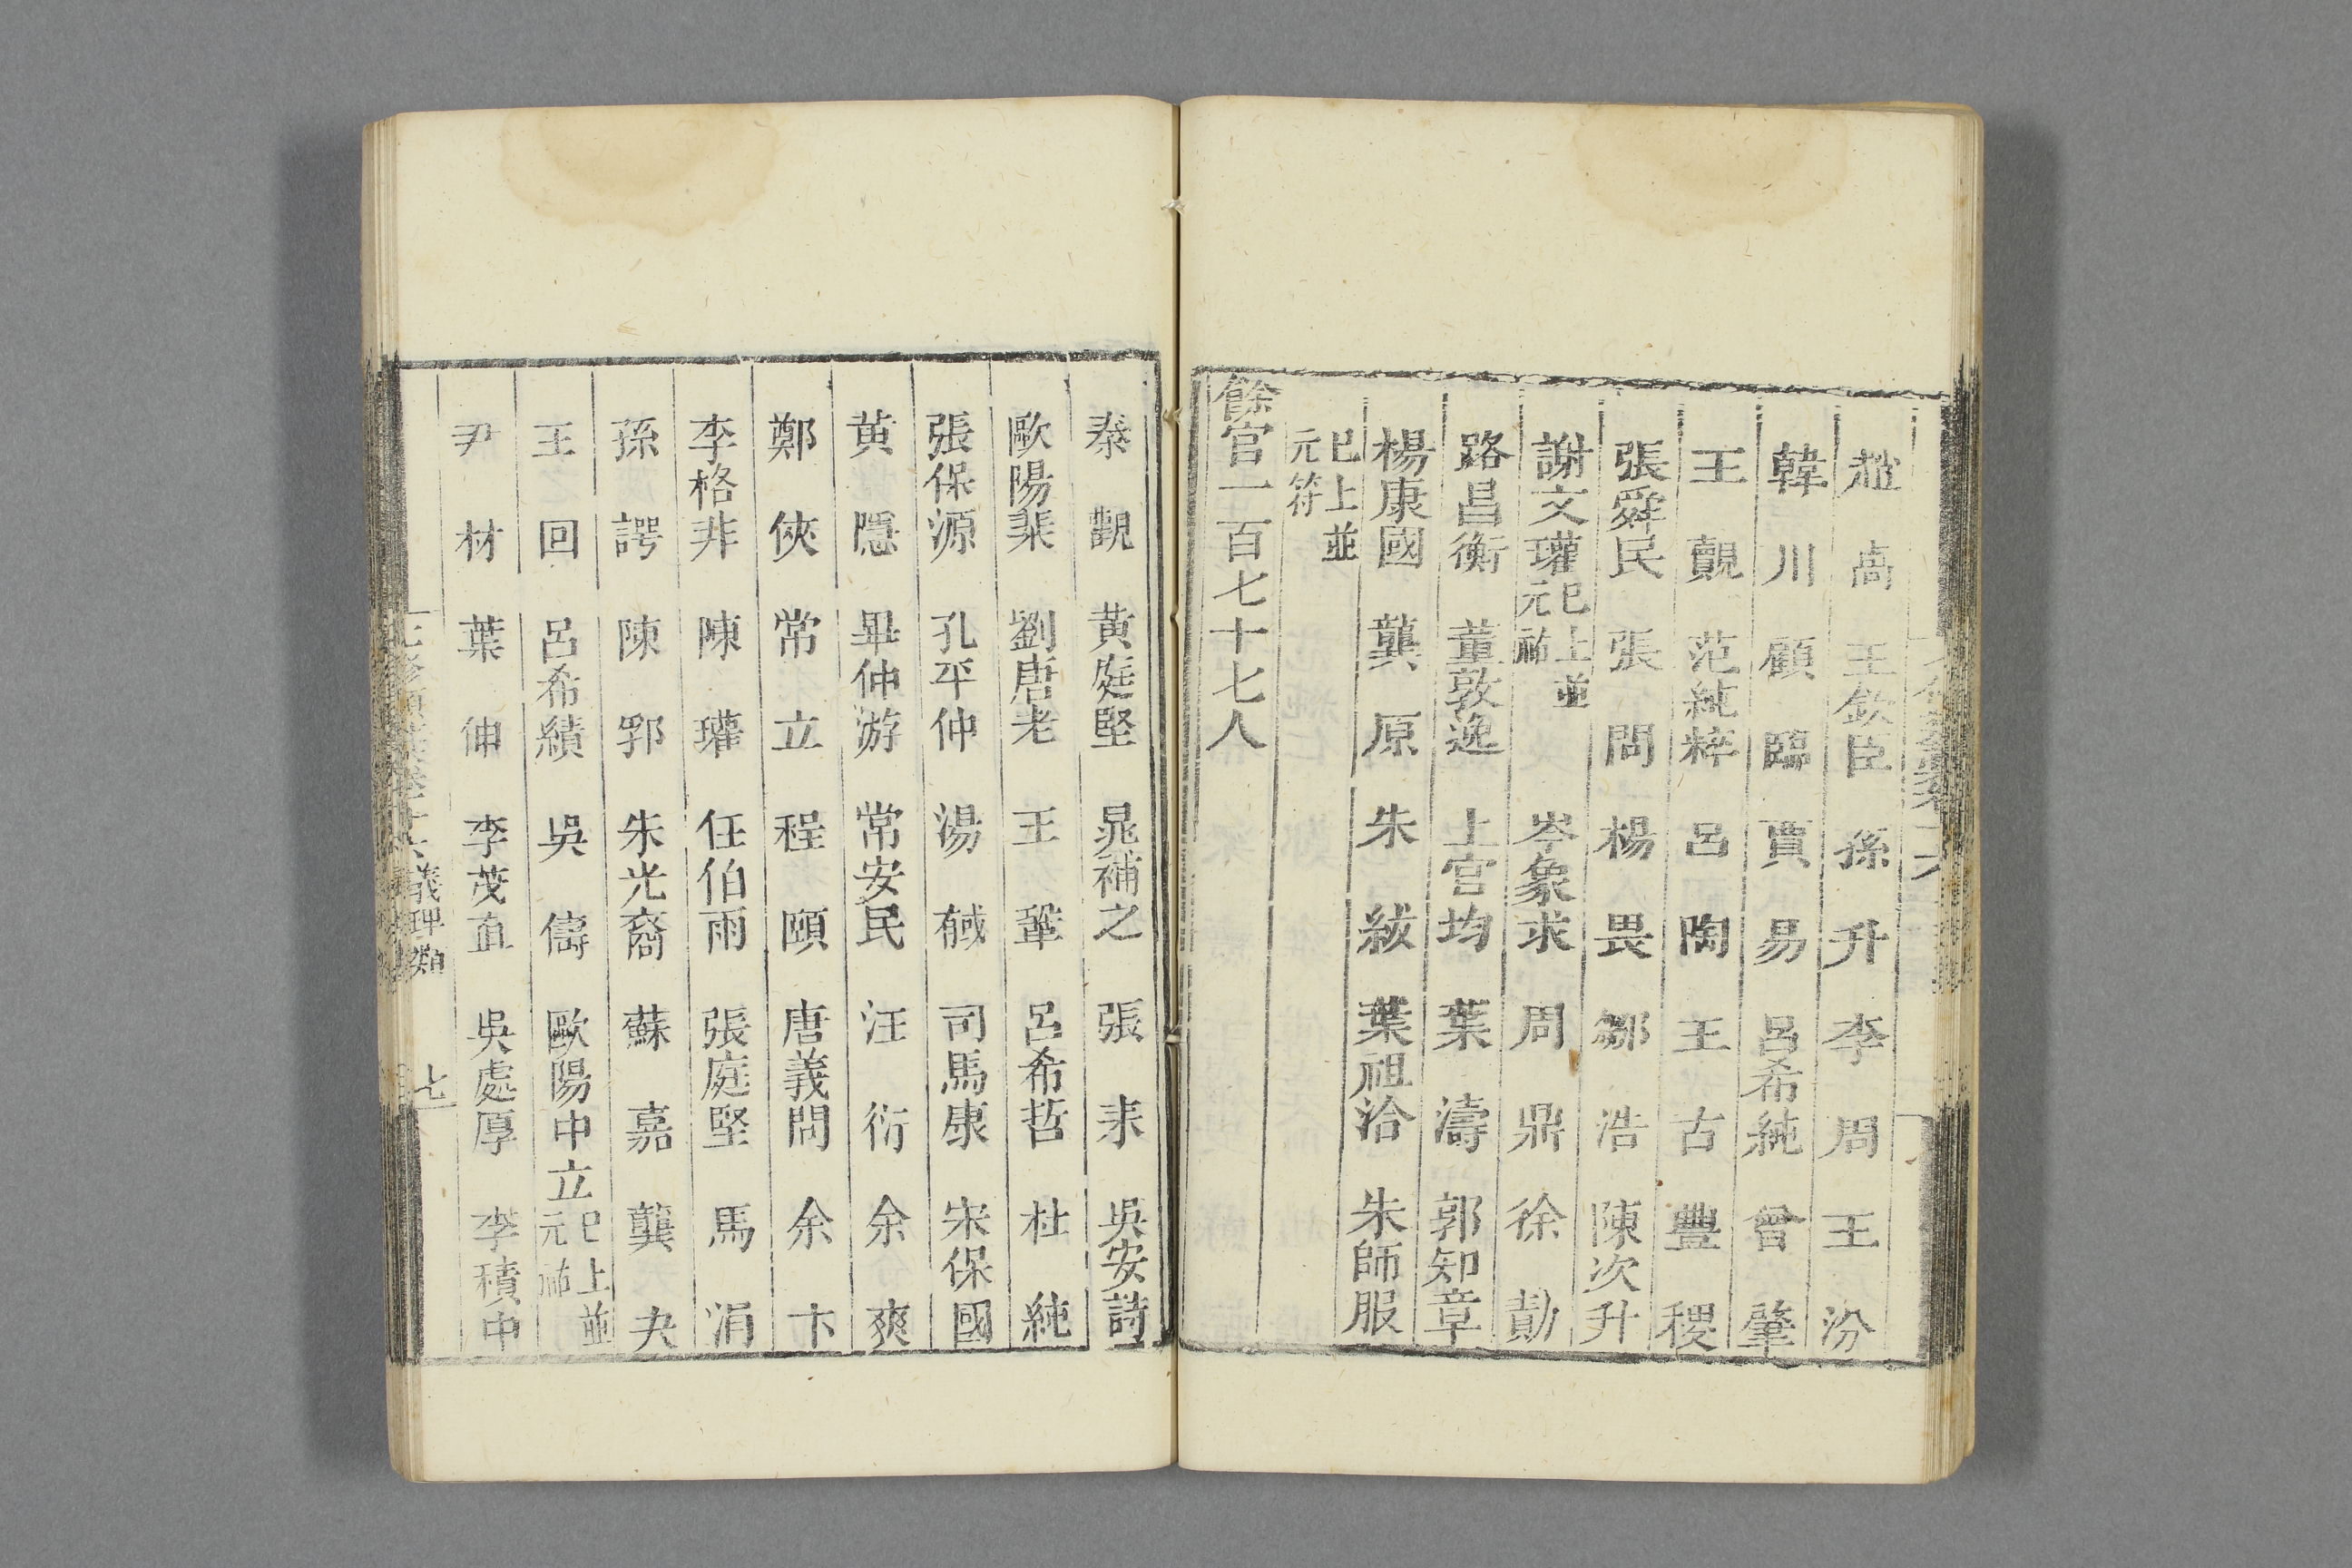 趙卨 王欽臣 孫升 李周 王汾
韓川 顧臨 賈易 呂希純 曾肇
王覿 范純粹 呂陶 王古 豐稷
張舜民 張問 楊畏 鄒浩 陳次升
謝文瓘 已上並元祐 岑象求 周鼎 徐勣
路昌衡 董敦逸 上官均 葉濤 郭知章
楊康國 龔原 朱紱 葉祖洽 朱師服
已上並元符
餘官一百七十七人
秦觀 黃庭堅 晁補之 張耒 吳安詩
歐陽棐 劉唐老 王鞏 呂希哲 杜純
張保源 孔平仲 湯戫 司馬康 宋保國
黄隱 畢仲游 常安民 汪衍 余爽
鄭俠 常立 程頤 唐義問 余卞
李格非 陳瓘 任伯雨 張庭堅 馬涓
孫諤 陳郛 朱光裔 蘇嘉 龔夬
王回 呂希績 吳儔 歐陽中立 已上並元祐
尹材 葉伸 李茂直 吳處厚 李積中
義理類 七